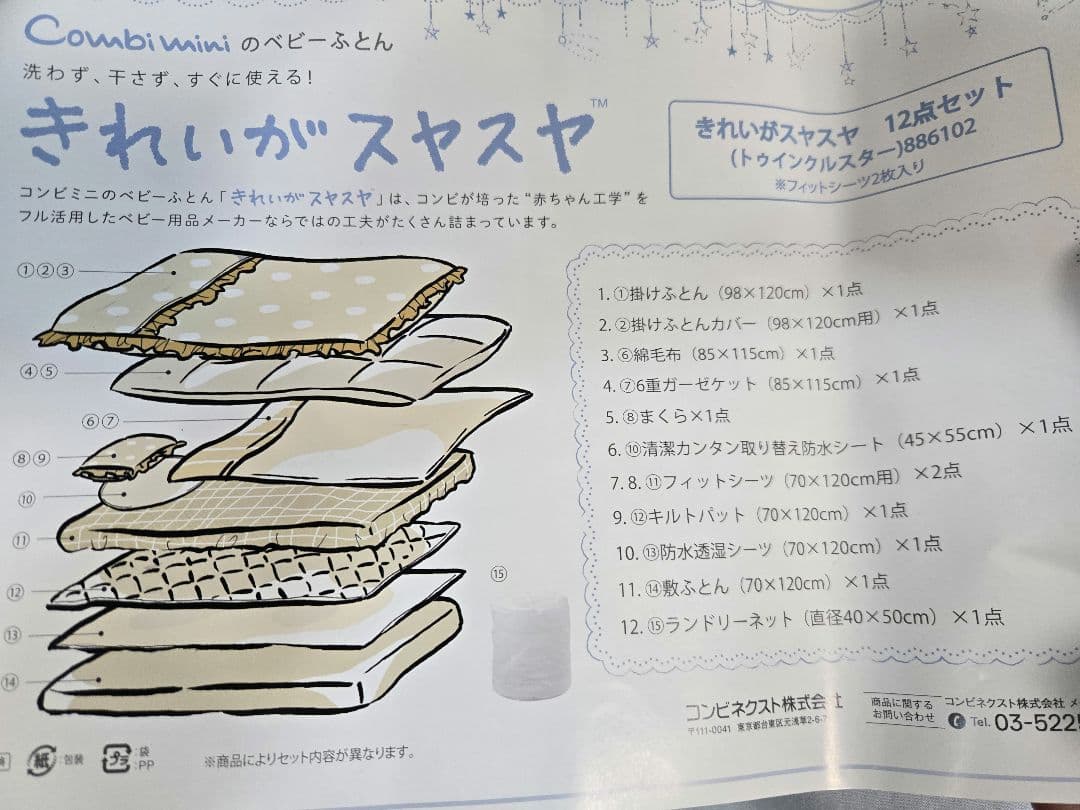 Combi mini のベビーふとん
洗わず、干さず、すぐに使える!
きれいがスヤスヤ™
コンビミニのベビーふとん「きれいがスヤスヤ」は、コンビが培った“赤ちゃん工学”を
フル活用したベビー用品メーカーならではの工夫がたくさん詰まっています。
きれいがスヤスヤ 12点セット
(トゥインクルスター)886102
※フィットシーツ2枚入り
①②③
④⑤
⑥⑦
⑧⑨
⑩
⑪
⑫
⑬
⑭
⑮
1.①掛けふとん(98×120cm)×1点
2.②掛けふとんカバー(98×120cm用)×1点
3.⑥綿毛布(85×115cm)×1点
4.⑦6重ガーゼケット(85×115cm)×1点
5.⑧まくら×1点
6.⑩清潔カンタン取り替え防水シート(45×55cm)×1点
7.8.⑪フィットシーツ(70×120cm用)×2点
9.⑫キルトパット(70×120cm)×1点
10.⑬防水透湿シーツ(70×120cm)×1点
11.⑭敷ふとん(70×120cm)×1点
12.⑮ランドリーネット(直径40×50cm)×1点
コンビネクスト株式会社
〒111-0041 東京都台東区元浅草2-6-
商品に関する
お問い合わせ
コンビネクスト株式会社
Tel. 03-522
紙 :包装
プラ :袋
:PP
※商品によりセット内容が異なります。